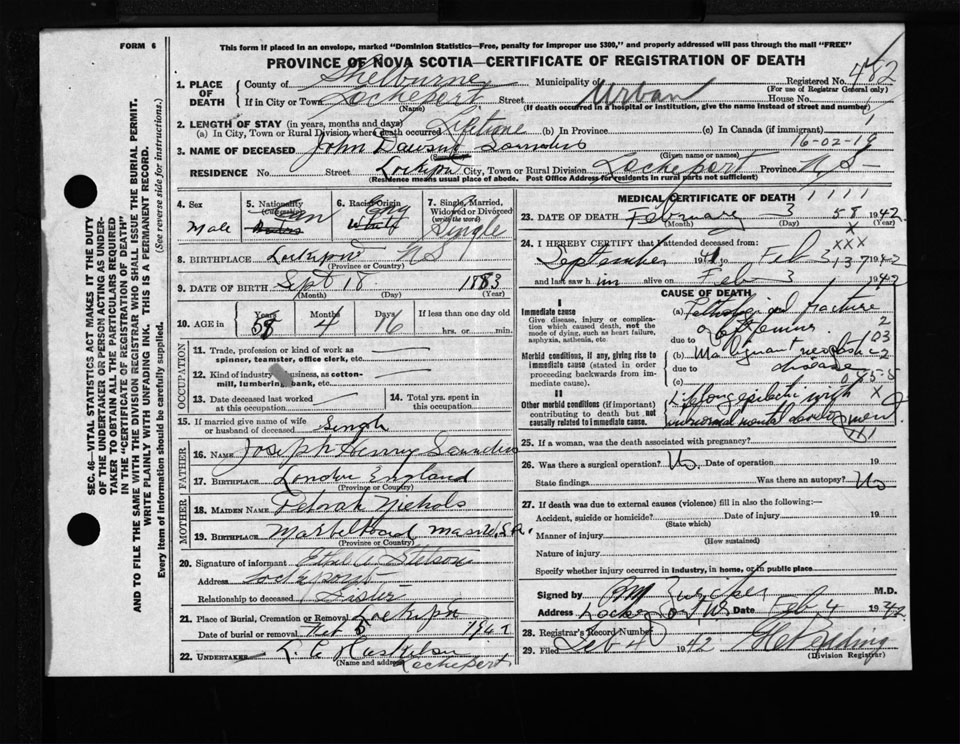 FORM 6
This form if placed in an envelope, marked "Dominion Statistics—Free, penalty for improper use $300," and properly addressed will pass through the mail "FREE"
PROVINCE OF NOVA SCOTIA—CERTIFICATE OF REGISTRATION OF DEATH
SEC. 46—VITAL STATISTICS ACT MAKES IT THE DUTY
OF THE UNDERTAKER OR PERSON ACTING AS UNDER-
TAKER TO OBTAIN ALL THE PARTICULARS REQUIRED
IN THE "CERTIFICATE OF REGISTRATION OF DEATH"
AND TO FILE THE SAME WITH THE DIVISION REGISTRAR WHO SHALL ISSUE THE BURIAL PERMIT.
WRITE PLAINLY WITH UNFADING INK. THIS IS A PERMANENT RECORD.
Every item of information should be carefully supplied. (See reverse side for instructions.)
1. PLACE OF DEATH
County of Shelburne Municipality of Registered No. 482
(For use of Registrar General only)
If in City or Town Lockeport Street Urban House No.
(Name) (If death occurred in a hospital or institution, give the name instead of street and number)
2. LENGTH OF STAY (in years, months and days)
(a) In City, Town or Rural Division where death occurred Lifetime (b) In Province (c) In Canada (if immigrant)
16-02-19
3. NAME OF DECEASED John Saunders
(Given name or names)
RESIDENCE No. Street City, Town or Rural Division Lockeport Province N.S.
(Residence means usual place of abode. Post Office Address for residents in rural parts not sufficient)
4. Sex Male
5. Nationality (Citizenship)
6. Racial Origin Eng
7. Single, Married, Widowed or Divorced (write the word) Single
8. BIRTHPLACE Lockeport N S
(Province or Country)
9. DATE OF BIRTH Sept 18 1883
(Month) (Day) (Year)
10. AGE in Years 58 Months 4 Days 16 If less than one day old
hrs. or min.
OCCUPATION
11. Trade, profession or kind of work as spinner, teamster, office clerk, etc.
12. Kind of industry or business, as cotton-mill, lumbering, bank, etc.
13. Date deceased last worked at this occupation
14. Total yrs. spent in this occupation
15. If married give name of wife or husband of deceased Single
FATHER
16. NAME Joseph Henry Saunders
17. BIRTHPLACE London England
(Province or Country)
MOTHER
18. MAIDEN NAME Deborah Nichols
19. BIRTHPLACE Marblehead Mass U.S.A.
(Province or Country)
20. Signature of informant Stetson
Address Lockeport
Relationship to deceased Sister
21. Place of Burial, Cremation or Removal Lockeport
Date of burial or removal Feb 5 1942
22. UNDERTAKER
(Name and address) Lockeport
MEDICAL CERTIFICATE OF DEATH
23. DATE OF DEATH February 3 58 1942
(Month) (Day) (Year)
24. I HEREBY CERTIFY that I attended deceased from:
September 1941 to Feb 3 1942
and last saw him alive on Feb 3 1942
CAUSE OF DEATH
I
Immediate cause
Give disease, injury or complication which caused death, not the mode of dying, such as heart failure, asphyxia, asthenia, etc.
(a) Pathological fracture
of femur
due to
Morbid conditions, if any, giving rise to immediate cause (stated in order proceeding backwards from immediate cause).
(b) Malignant neoplastic
due to disease
(c)
II
Other morbid conditions (if important) contributing to death but not causally related to immediate cause.
Lifelong epileptic with
25. If a woman, was the death associated with pregnancy?
26. Was there a surgical operation? No. Date of operation 19
State findings Was there an autopsy? No
27. If death was due to external causes (violence) fill in also the following:—
Accident, suicide or homicide? Date of injury 19
(State which)
Manner of injury
(How sustained)
Nature of injury
Specify whether injury occurred in industry, in home, or in public place
Signed by M.D.
Address Lockeport N.S. Date Feb 4 1942
28. Registrar's Record Number
29. Filed Feb 4 1942
(Division Registrar)